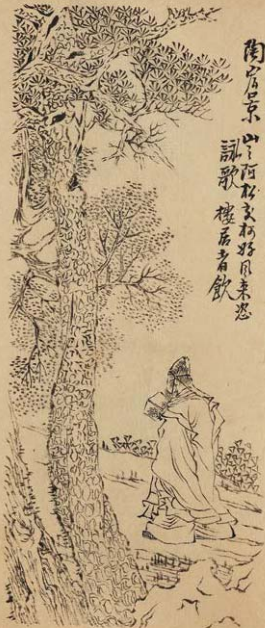 陶宏景 山之阿松交柯好風来恣
詠歌 樓居